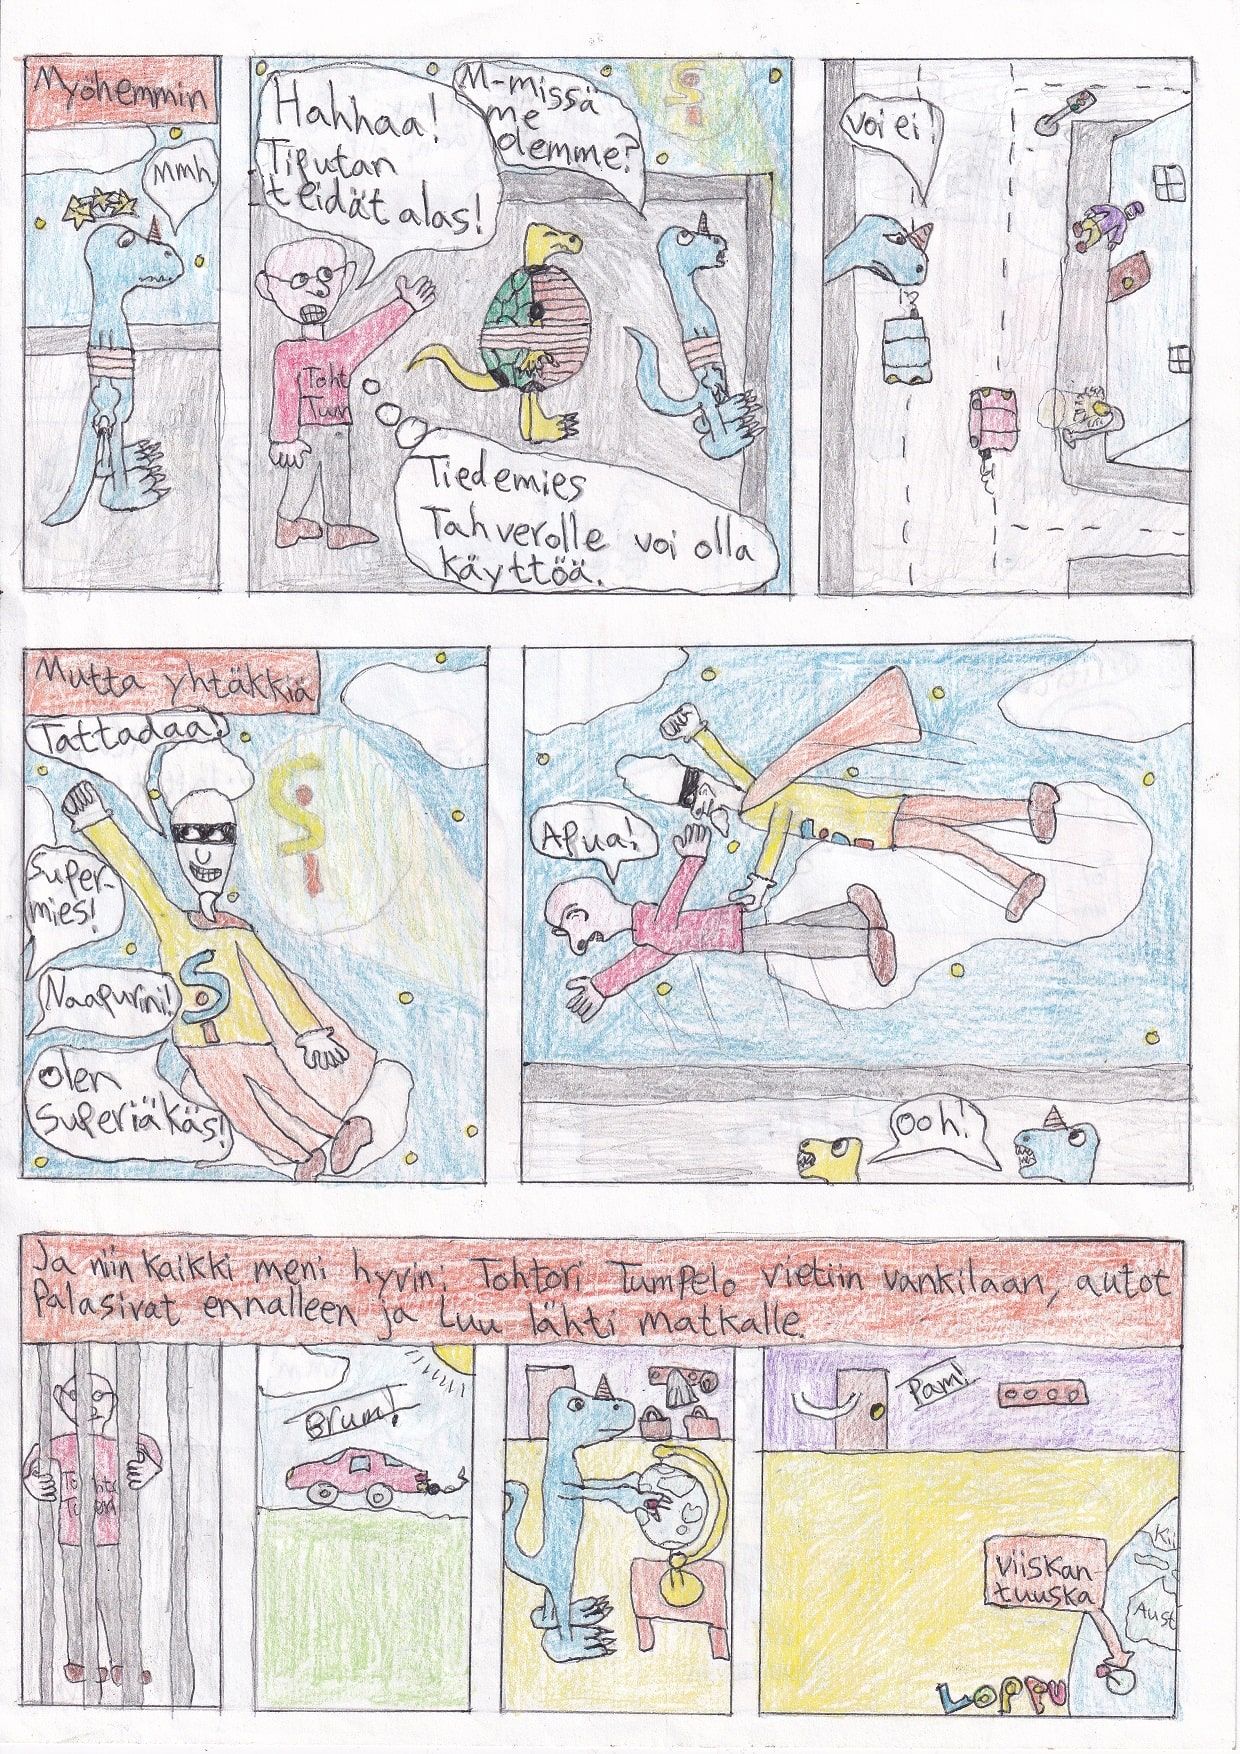 Myöhemmin
Mmh.
Hahhaa!
Tiputan
teidät alas!
M-missä
me
olemme?
Toht
Tum
Tiedemies
Tahverolle voi olla
käyttöä.
voi ei!
Mutta yhtäkkiä
Tattadaa!
Super-
mies!
Naapurini!
Olen
Superiäkäs!
Si
Si
Apua!
Ooh!
Ja niin kaikki meni hyvin; Tohtori Tumpelo vietiin vankilaan, autot
palasivat ennalleen ja Luu lähti matkalle.
Brum!
Pam!
viiskan-
tuuska
Kii
Aust
LOPPU